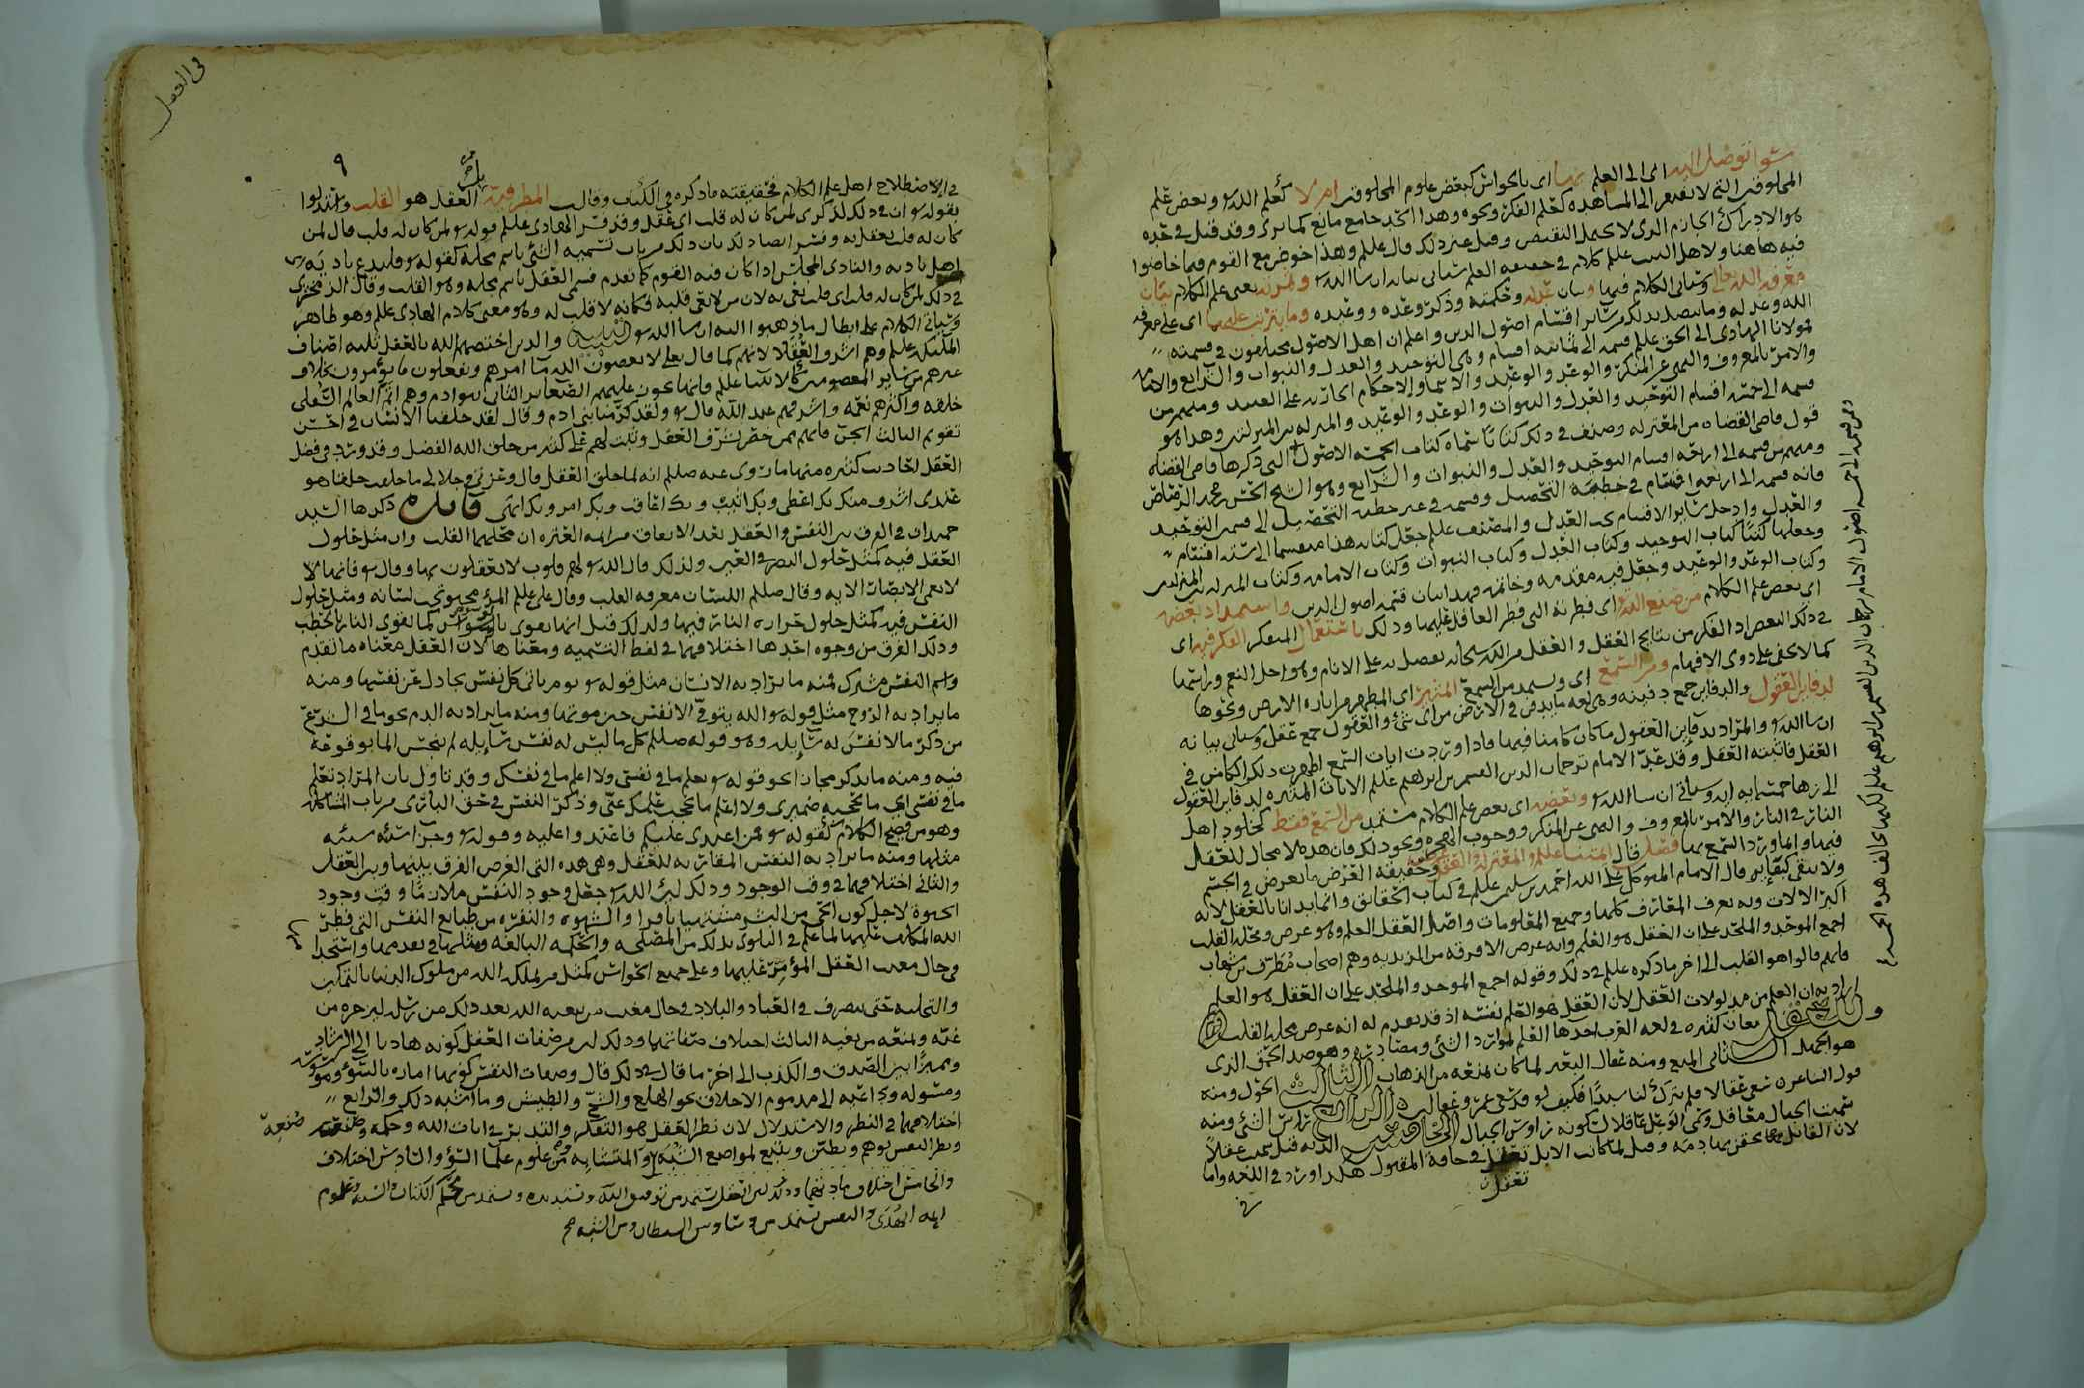 سوا توصل اليه اى الى العلم بها اى بالحواس كبعض علوم المخلوقين ام لا كعلم الله و وبعض علم
المخلوقين التي لا تفتقر الى المشاهده كعلم الفكر ونحوه وهذا الحد جامع مانع كما ترى وقد قيل في حده
هو الادراك الجازم الذى لا يحتمل النقيض وقيل غير ذلك قال علم وهذا خوض مع القوم فيما خاضوا
فيه هاهنا ولاهل البيت علم كلام في حقيقه العلم سياتي بيانه ان شا الله و ثمرته يعنى علم الكلام بيان
معرفه الله تعالى وسياتي الكلام فيها وبيان عدله وحكمته وذكر وعده ووعيده وما يترتب عليها اى على معرفه
الله وعدله وما يتصل بذلك من سائر اقسام اصول الدين واعلم ان اهل الاصول مختلفون في قسمته
فمولانا الهادى الى الحق علم قسمه الى ثمانيه اقسام وهى التوحيد والعدل والنبوات والشرايع والامامه
والامر بالمعروف والنهى عن المنكر والوعد والوعيد والاسما والاحكام الجاريه على العبيد ومنهم من
قسمه الى خمسه اقسام التوحيد والعدل والنبوات والوعد والوعيد والمنزله بين المنزلتين وهذا هو
قول قاضى القضاه من المعتزله وصنف في ذلك كتابا سماه كتاب الخمسه الاصول التي ذكرها قاضى القضاه
ومنهم من قسمه الى اربعه اقسام التوحيد والعدل والنبوات والشرايع وهو الشيخ الحسن بن محمد الرصاص
فانه قسمه الى اربعه اقسام في خطبه التحصيل وقسمه في غير خطبه التحصيل الى قسمين التوحيد
والعدل وادخل سائر الاقسام تحت العدل والمصنف علم جعل كتابه هذا منقسما الى سته اقسام
وجعلها كتبا كتاب التوحيد وكتاب العدل وكتاب النبوات وكتاب الامامه وكتاب المنزله بين المنزلتين
وكتاب الوعد والوعيد وجعل فيه مقدمه وخاتمه فهذا بيان قسمه اصول الدين واستمداد بعضه
اى بعض علم الكلام من صنيع الله اى فطرته التي فطر العاقل عليها وذلك باستعمال المتفكر الفكر فيه اى
في ذلك البعض اذ الفكر من نتايج العقل والعقل من الله سبحانه تفضل به على الانام وهو اجل النعم وراسها
كما لا يخفى على ذوى الافهام ومن السمع اى ويستمد من السمع المثير اى المظهر من اثاره الارض ونحوها
لدفاين العقول والدفاين جمع دفينه وهى لغه ما يدفن في الارض من اى شئ والعقول جمع عقل وسياتي بيانه
ان شا الله و والمراد بدفاين العقول ما كان كامنا فيها فاذا وردت ايات السمع اظهرت ذلك الكامن في
العقل فاثبته العقل وقد عد الامام ترجمان الدين القسم بن ابرهيم علم الايات المثيره لدفاين العقول
الى زها خمسمايه ايه وسياتي ان شا الله و وبعضه اى بعض علم الكلام مستمد من السمع فقط كخلود اهل
النار في النار والامر بالمعروف والنهى عن المنكر ووجوب الهجره ونحو ذلك فان هذه لا مجال للعقل
فيها وانما ورد السمع بها فصل قال ائمتنا علم والمعتزله والعقل عرض وحقيقه العرض ما يعرض في الجسم
ولا يبقى كبقايه قال الامام المتوكل على الله احمد بن سليمن علم في كتاب الحقائق وانما بدانا بالعقل لانه
اكبر الالات وبه تعرف المعارف كلها وجميع المعلومات واصل العقل العلم وهو عرض ومحله القلب
اجمع الموحد والملحد على ان العقل هو العلم وانه عرض الا فرقه من الزيديه وهم اصحاب مطرف بن شهاب
فانهم قالوا هو القلب الى اخر ما ذكره علم في ذلك وقوله اجمع الموحد والملحد على ان العقل هو العلم
اراد به ان العلم من مدلولات العقل لان العقل هو العلم نفسه اذ قد تقدم له انه عرض محله القلب
وللعقل معان كثيره في لغه العرب احدها العلم لموارد الشئ ومصادره وهو ضد الحمق الذى
هو الجهل الثاني المنع ومنه عقال البعير لما كان يمنعه من الذهاب الثالث الحول ومنه
قول الشاعر سعى عقالا فلم يترك لنا سبدا فكيف لو قد سعى عمرو عقالين الرابع راس الشئ ومنه
سميت الجبال معاقل وسمى الوعل عاقلا لكونه في روس الجبال الخامس الديه قيل سميت عقلا
لان القاتل بها يحقن بها دمه وقيل لما كانت الابل تعقل في حافه المقتول هكذا ورد في اللغه واما
تعقل
ومن قسمه الى خمسه اصول الامام ترجمان الدين القسم بن ابرهيم علم لكنها تخالف هذه الخمسه
في العقل
٩
في الاصطلاح اهل علم الكلام فحقيقته ما ذكره في الكتاب وقالت المطرفيه بل العقل هو القلب واستدلوا
بقوله و ان في ذلك لذكرى لمن كان له قلب اى عقل وقد فسر الهادى علم قوله و لمن كان له قلب قال لمن
كان له قلب يعقل به وفسر ايضا ذلك بان ذلك من باب تسميه الشئ باسم محله كقوله و فليدع ناديه
اهل ناديه والنادى المجلس اذا كان فيه القوم كما تقدم فسمى العقل باسم محله وهو القلب وقال الزمخشرى
في ذلك لمن كان له قلب اى قلب يعى به لان من لا يعى قلبه فكانه لا قلب له وهو معنى كلام الهادى علم وهو ظاهر
وسياتي الكلام على ابطال ما ذهبوا اليه ان شا الله و تنبيه والذين اختصهم الله بالعقل ثلثه اصناف
الملئكه علم وهم اشرف العقلا لانهم كما قال تعلى لا يعصون الله ما امرهم ويفعلون ما يؤمرون بخلاف
غيرهم من سائر المعصومين كالانبيا علم فانما يجوز عليهم الصغاير الثاني بنوادم وهم اشرف العالم السفلى
خلقه واكثرهم نعمه واشرفهم عند الله قال و ولقد كرمنا بني ادم وقال لقد خلقنا الانسان في احسن
تقويم الثالث الجن فانهم ممن خص بشرف العقل وثبت لهم على كثير من خلق الله الفضل وقد ورد في فضل
العقل احاديث كثيره منها ما روى عنه صللم انه لما خلق العقل قال وعزتي وجلالى ما خلقت خلقا هو
عندى اشرف منك بك اعطى وبك اثيب وبك اعاقب وبك امر وبك انهى فايده ذكرها السيد
حميدان في الفرق بين النفس والعقل بعد الاتفاق من ائمه العتره ان محلهما القلب وان مثل حلول
العقل فيه كمثل حلول البصر في العين ولذلك قال الله و لهم قلوب لا يعقلون بها وقال و فانها لا
لا تعمى الابصار الايه وقال صللم اللسان معرفه القلب وقال على علم المرؤ مخبو تحت لسانه ومثل حلول
النفس فيه كمثل حلول حراره النار فيها ولذلك قيل انها تقوى بالوسواس كما تقوى النار بالحطب
وذلك الفرق من وجوه احدها اختلافهما في لفظ التسميه ومعناها لان العقل معناه ما تقدم
واسم النفس مشترك فمنه ما يراد به الانسان مثل قوله و يوم ياتي كل نفس تجادل عن نفسها ومنه
ما يراد به الروح مثل قوله و الله يتوفى الانفس حين موتها ومنه ما يراد به الدم نحو ما في الشرع
من ذكر ما لا نفس له سائله وهو قوله صللم كل ما ليس له نفس سائله لم ينجس الما بوقوعه
فيه ومنه ما يذكر مجازا نحو قوله و تعلم ما في نفسي ولا اعلم ما في نفسك وقد تاول بان المراد تعلم
ما في نفسي اى ما يخفيه ضميرى ولا اعلم ما تحجب علمك عنى وذكر النفس في حق البارى من باب المشاكله
وهو من فصيح الكلام كقوله و فمن اعتدى عليكم فاعتدوا عليه وقوله و وجزا سيئه سيئه
مثلها ومنه ما يراد به النفس المقارنه للعقل وهى هذه التي الغرض الفرق بينها وبين العقل
والثاني اختلافهما في وقت الوجود وذلك لان الله و جعل وجود النفس ملازما وقت وجود
الحيوه لاجل كون الحى من البشر مشتهيا نافرا والشهوه والنفره من طبايع النفس التي فطر
الله المكلف عليها لما علم في البلوى بذلك من المصلحه والحكمه البالغه ومثلها في تقدمها واستحدا
في حال مغيب العقل المؤمر عليها وعلى جميع الحواس كمثل من يملكه الله من ملوك الدنيا بالتمكين
والتخليه حتى يتصرف في العباد والبلاد في حال مغيب من يبعثه الله بعد ذلك من رسل ليزجره عن
غيه ويمنعه من بغيه الثالث اختلاف صفاتهما وذلك لان من صفات العقل كونه هاديا الى الرشاد
ومميزا بين الصدق والكذب الى اخر ما قال في ذلك قال وصفات النفس كونها اماره بالسوء وموسوسه
ومسوله وداعيه الى مذموم الاخلاق نحو الهلع والشح والطيش وما اشبه ذلك والرابع
اختلافهما في النظر والاستدلال لان نظر العقل هو التفكر والتدبر في ايات الله وحكمه وصنعه
ونظر النفس توهم وتظنن وتتبع لمواضع الشبه والمتشابه من علوم علما السوء والسادس اختلاف
والخامس اختلاف مادتهما وذلك لان العقل يستمد من توفيق الله وتسديده ويستمد من محكم الكتاب والسنه وعلوم
ايمه الهدى والنفس تستمد من وساوس الشيطان ومن الشبه